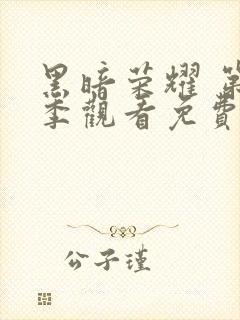 黑暗荣耀 第
季觀看免費
公子瑾